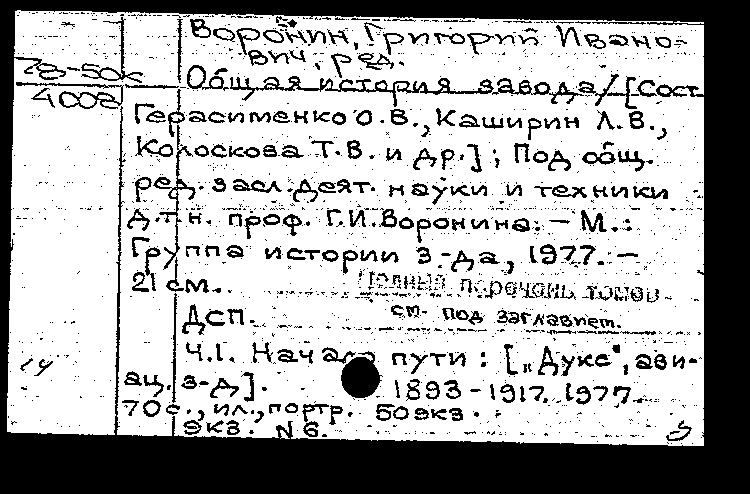 Воронин, Григорий Ивано-
вич, ред.
78-50к
Общая история завода/[Сост.
4008
Герасименко О.В., Каширин Л.В.,
Колоскова Т.В. и др.]; Под общ.
ред. засл. деят. науки и техники
д.т.н. проф. Г.И.Воронина. – М.:
Группа истории з-да, 1977. –
21 см.
Полный перечень томов
см. под заглавием.
ДСП.
Ч.1. Начало пути: [„Дукс", ави-
14
ац. з-д]. 1893-1917. 1977.
70 с., ил., портр. 50 экз.
Экз. N 6.